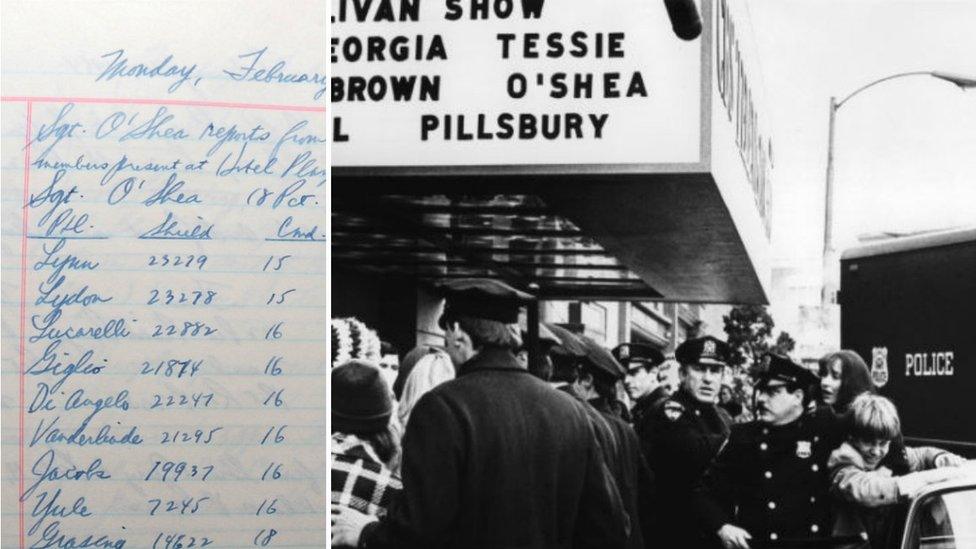 Monday, February
Sgt. O'Shea reports from
members present at Hotel Plaz
Sgt. O'Shea 18 Pct.
Ptl. Shield Cmd.
Lynn 23279 15
Lydon 23278 15
Lucarelli 22882 16
Giglio 21874 16
Di Angelo 22247 16
Vanderlinde 21295 16
Jacobs 19937 16
Yule 7245 16
Grasing 14622 18
LIVAN SHOW
EORGIA TESSIE
BROWN O'SHEA
L PILLSBURY
POLICE